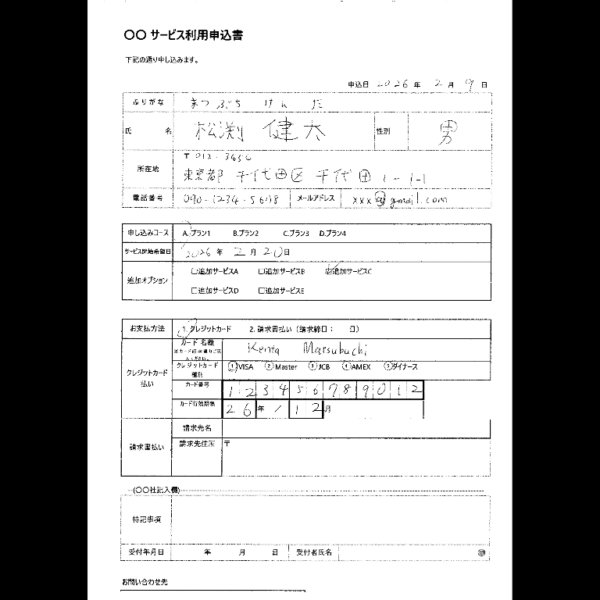 〇〇 サービス利用申込書
下記の通り申し込みます。
申込日 2026 年 2 月 19 日
ふりがな まつ ぶち けん た
氏 名 松渕 健太 性別 男
〒012-3456
所在地 東京都 千代田区 千代田 1-1-1
電話番号 090-1234-5678 メールアドレス xxx@gmail.com
申し込みコース A.プラン1 B.プラン2 C.プラン3 D.プラン4
サービス開始希望日 2026 年 2 月 20 日
追加オプション □追加サービスA □追加サービスB ☑追加サービスC
□追加サービスD □追加サービスE
お支払方法 1. クレジットカード 2. 請求書払い（請求締日： 日）
クレジットカード払い
カード 名義 Kenta Matsubuchi
クレジットカード種別 ①VISA ②Master ③JCB ④AMEX ⑤ダイナース
カード番号 1 2 3 4 5 6 7 8 9 0 1 2
カード有効期限 26 年 / 12 月
請求書払い
請求先名
請求先住所 〒
(〇〇社記入欄)
特記事項
受付年月日 年 月 日 受付者氏名 ㊞
お問い合わせ先